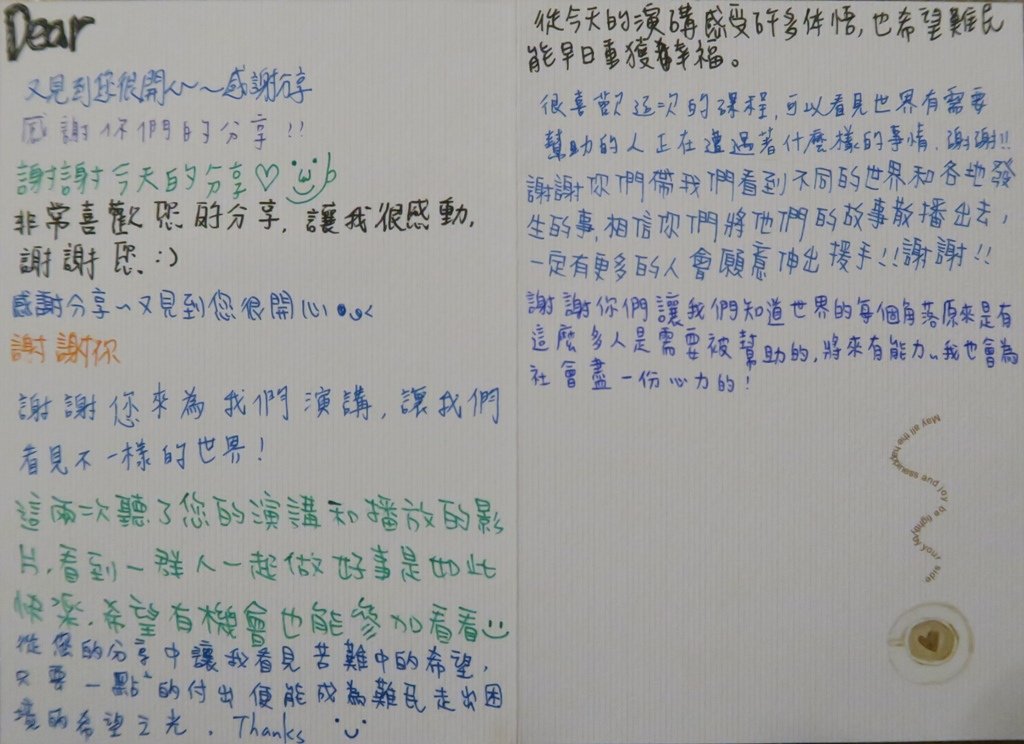 Dear
又見到您很開心~~感謝分享
感謝你們的分享!!
謝謝今天的分享♡
非常喜歡您的分享,讓我很感動,
謝謝您.:)
感謝分享~又見到您很開心
謝謝你
謝謝您來為我們演講,讓我們
看見不一樣的世界!
這兩次聽了您的演講和播放的影
片,看到一群人一起做好事是如此
快樂,希望有機會也能參加看看
從您的分享中讓我看見苦難中的希望,
只要一點點的付出便能成為難民走出困
境的希望之光. Thanks
從今天的演講感受許多体悟,也希望難民
能早日重獲幸福。
很喜歡這次的課程,可以看見世界有需要
幫助的人正在遭遇著什麼樣的事情.謝謝!!
謝謝你們帶我們看到不同的世界和各地發
生的事,相信你們將他們的故事散播出去,
一定有更多的人會願意伸出援手!!謝謝!!
謝謝你們讓我們知道世界的每個角落原來是有
這麼多人是需要被幫助的,將來有能力,我也會為
社會盡一份心力的!
May all the happiness and joy be lightly by your side